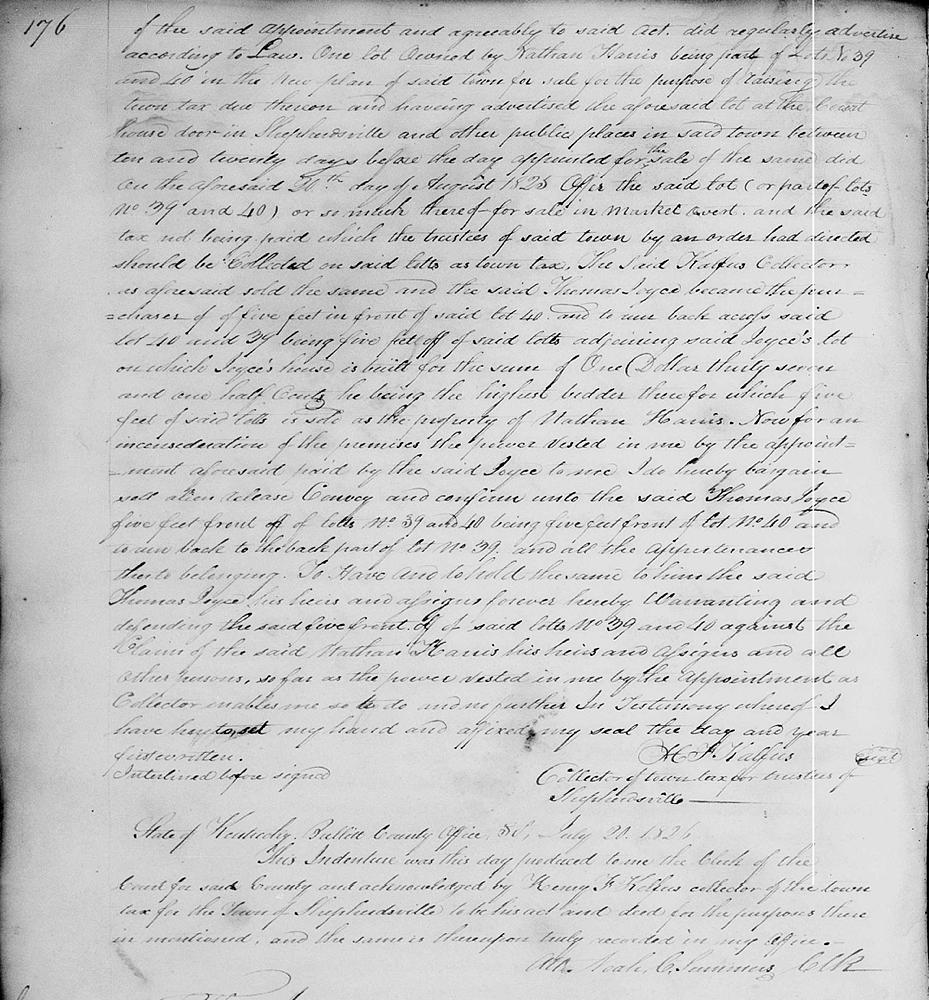 176
of the said appointment and agreeably to said act. did regularly advertise
according to Law. One lot Owned by Nathan Harris being part of Lots No 39
and 40 in the new plan of said town for sale for the purpose of raising the
town tax due thereon and haveing advertised the aforesaid lot at the Court
house door in Shepherdsville and other public places in said town between
ten and twenty days before the day appointed for the sale of the same did
on the aforesaid 20th day of August 1825 Offer the said lot (or part of lots
No 39 and 40) or so much thereof for sale in market overt. and the said
tax not being paid which the trusties of said town by an order had directed
should be Collected on said lotts as town tax. The said Kalfus Collector
as aforesaid sold the same and the said Thomas Joyce became the pur=
=chaser of of five feet in front of said lot 40. and to run back across said
lot 40 and 39 being five feet off of said lotts adjoining said Joyce's lot
on which Joyce's house is built for the sum of One Dollar thirty seven
and one half Cents he being the highest bidder therefor which five
feet of said lotts is sold as the property of Nathan Harris. Now for an
inconsideration of the premises the power vested in me by the appoint=
=ment aforesaid paid by the said Joyce to me I do hereby bargain
sell alien release Convey and confirm unto the said Thomas Joyce
five feet front off of lotts No 39 and 40 being five feet front of lot No. 40 and
to run back to the back part of lot No 39. and all the appertenances
therto belonging. To Have and to hold the same to him the said
Thomas Joyce his heirs and assigns forever hereby Warranting and
defending the said five front off of said lotts No 39 and 40 against the
Claim of the said Nathan Harris his heirs and assigns and all
other persons, so far as the power vested in me by the appointment as
Collector enables me so to do and no further In Testimony whereof I
have herto set my hand and affixed my seal the day and year
first written.
H F Kalfus seal
Interlined before signed
Collector of town tax for trusties of
Shepherdsville
State of Kentucky, Bullitt County Office, Sct, July 20. 1826
This Indenture was this day produced to me the Clerk of the
Court for said County and acknowledged by Henry F Kalfus collector of the town
tax for the Town of Shepherdsville to be his act and deed for the purposes there
in mentioned, and the same is thereupon truly recorded in my office.
Att. Noah C. Summers Clk